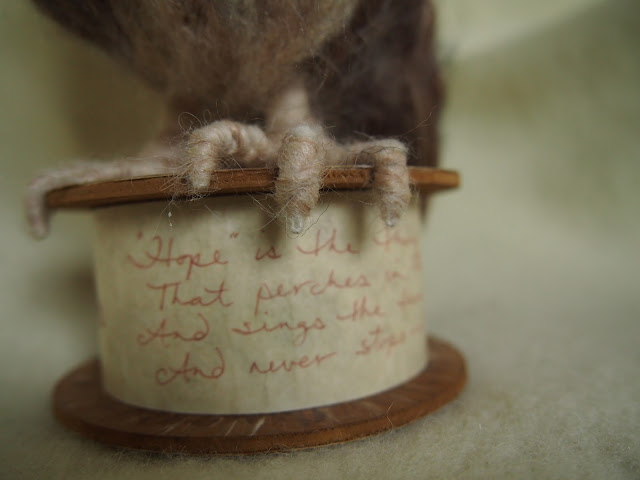 "Hope" is the thing
That perches in
And sings the
And never stops